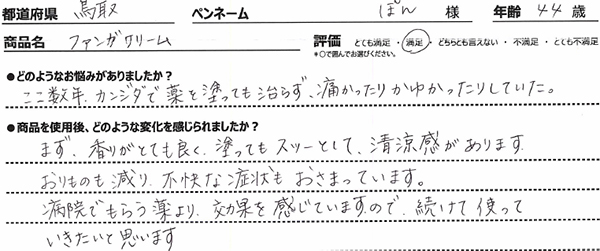 都道府県 鳥取 ペンネーム ぽん 様 年齢 44 歳
商品名 ファンガクリーム 評価 とても満足・満足・どちらとも言えない・不満足・とても不満足
*○で囲んでお選びください。
●どのようなお悩みがありましたか？
ここ数年、カンジダで薬を塗っても治らず、痛かったりかゆかったりしていた。
●商品を使用後、どのような変化を感じられましたか？
まず、香りがとても良く、塗ってもスッーとして、清涼感があります。
おりものも減り、不快な症状もおさまっています。
病院でもらう薬より、効果を感じていますので、続けて使って
いきたいと思います